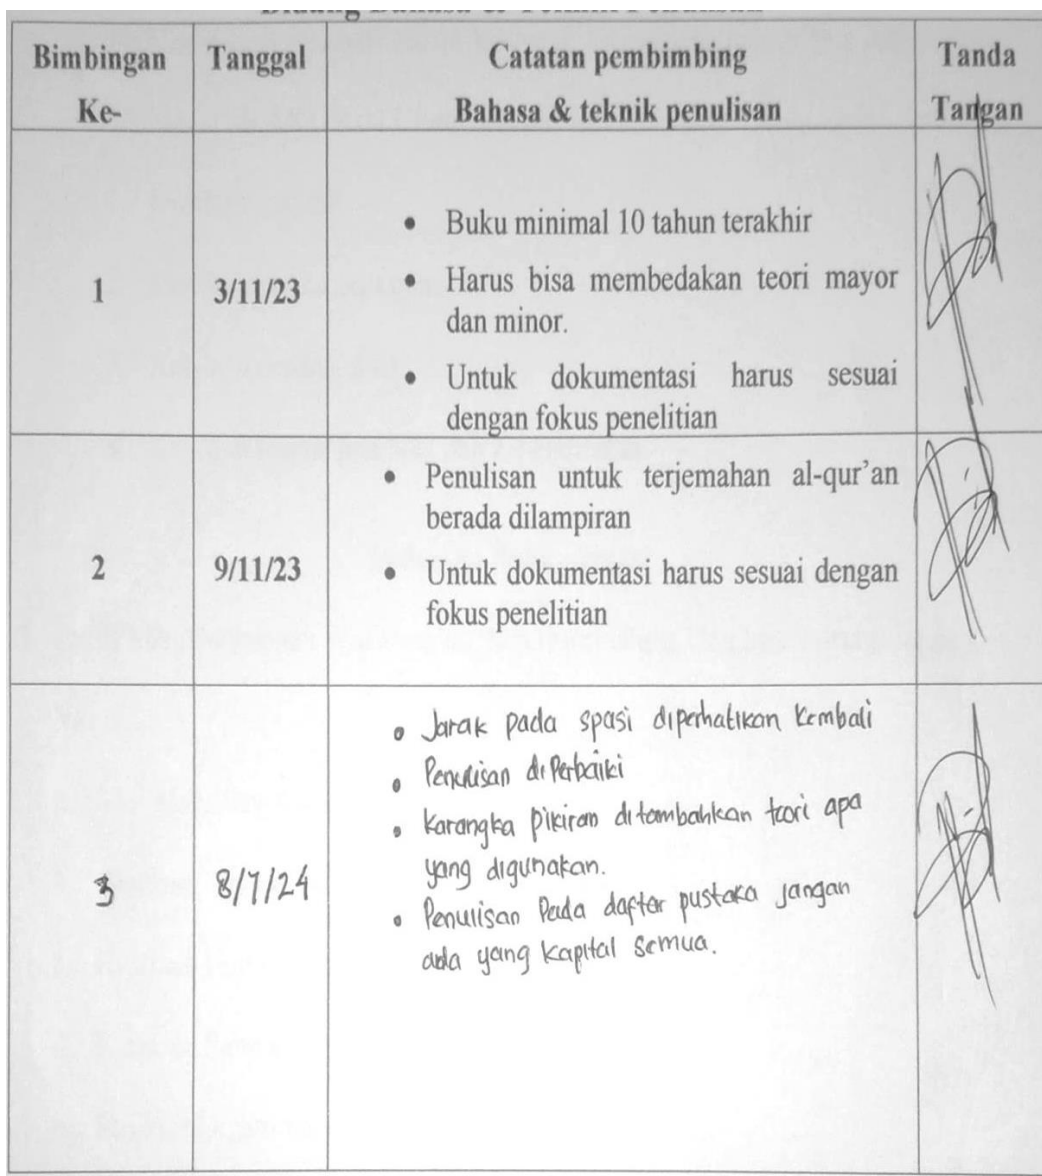 Bimbingan Ke-
Tanggal
Catatan pembimbing
Bahasa & teknik penulisan
Tanda Tangan
1
3/11/23
• Buku minimal 10 tahun terakhir
• Harus bisa membedakan teori mayor
dan minor.
• Untuk dokumentasi harus sesuai
dengan fokus penelitian
2
9/11/23
• Penulisan untuk terjemahan al-qur'an
berada dilampiran
• Untuk dokumentasi harus sesuai dengan
fokus penelitian
3
8/7/24
• Jarak pada spasi diperhatikan kembali
• Penulisan diPerbaiki
• Karangka Pikiran ditambahkan teori apa
yang digunakan.
• Penulisan Pada daftar pustaka jangan
ada yang kapital semua.